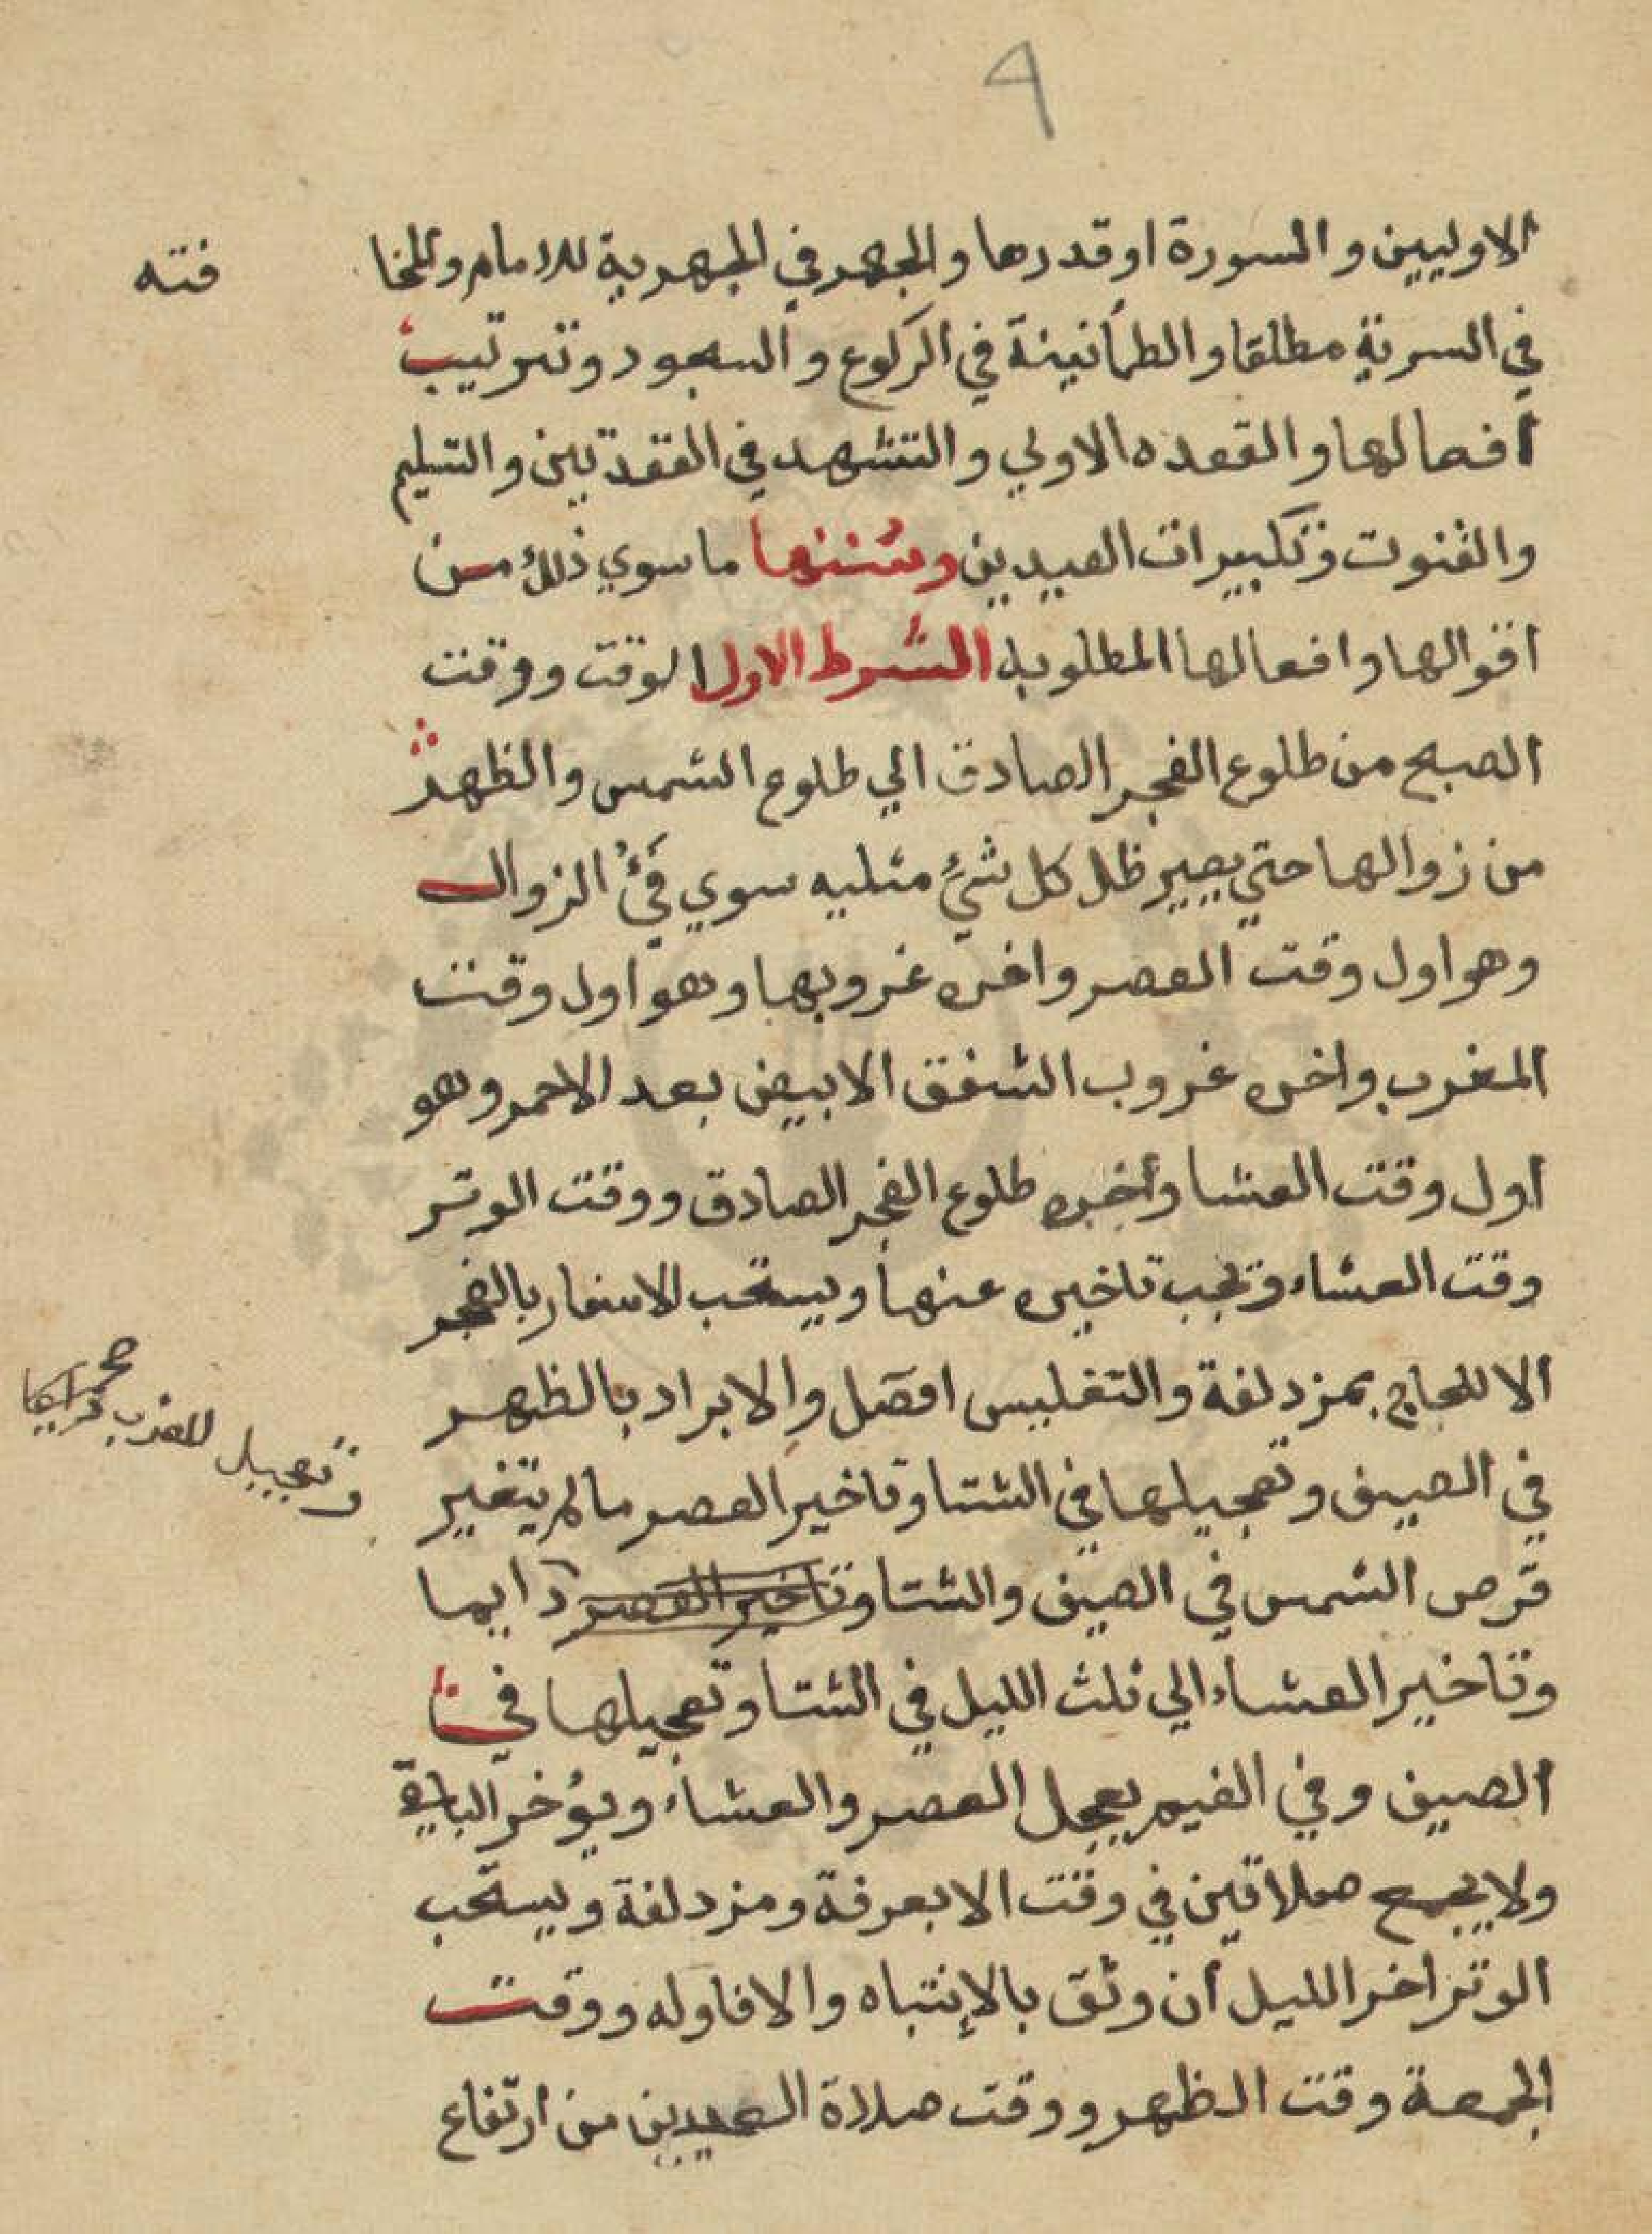 ٩
الاوليين والسورة او قدرها والجهر في الجهرية للامام والمخا فته
في السرية مطلقا والطمأنينة في الركوع والسجود وترتيب
افعالها والقعده الاولي والتشهد في القعدتين والتسليم
والقنوت وتكبيرات العيدين وسننها ما سوي ذلك من
اقوالها وافعالها المطلوبه الشرط الاول الوقت ووقت
الصبح من طلوع الفجر الصادق الي طلوع الشمس والظهر
من زوالها حتي يصير ظل كل شيء مثليه سوي فيء الزوال
وهو اول وقت العصر واخره غروبها وهو اول وقت
المغرب واخره غروب الشفق الابيض بعد الاحمر وهو
اول وقت العشا وأخره طلوع الفجر الصادق ووقت الوتر
وقت العشاء وتجب تاخيره عنها ويستحب الاسفار بالفجر
الا للحاج بمزدلفة والتغليس افضل والابراد بالظهر
في الصيف وتعجيلها في الشتا وتاخير العصر ما لم يتغير
قرص الشمس في الصيف والشتا وتاخير العصر دايما
وتعجيل المغرب صح
وتاخير العشاء الي ثلث الليل في الشتا وتعجيلها في
الصيف وفي الغيم يعجل العصر والعشاء ويؤخر الباقي
ولا يجمع صلاتين في وقت الا بعرفة ومزدلفة ويستحب
الوتر اخر الليل أن وثق بالإنتباه والا فاوله ووقت
الجمعة وقت الظهر ووقت صلاة العيدين من ارتفاع